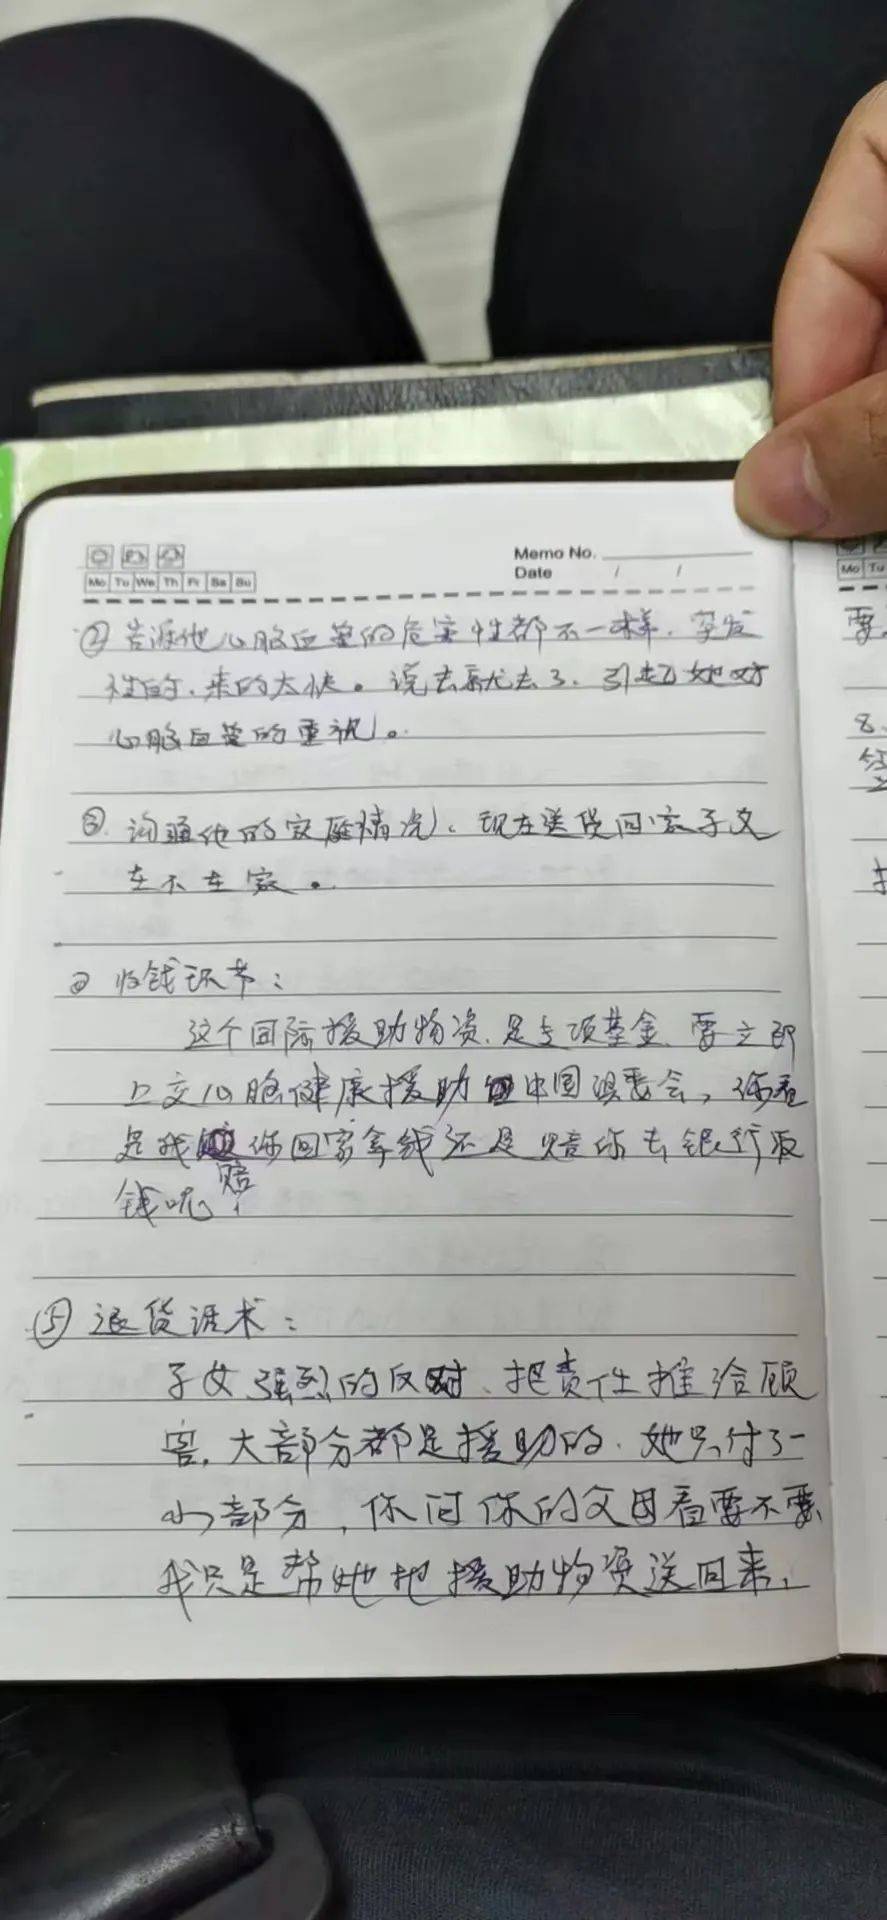 Memo No.
Date / /
Mo Tu We Th Fr Sa Su
Mo Tu
② 告诉他心脑血管的危害性都不一样，突发
性的，来的太快。说去就去了，引起她对
心脑血管的重视。
③ 沟通他的家庭情况，现在送货回家子女
在不在家。
收钱环节：
这个国际援助物资，是专项基金，要立即
上交心脑健康援助中国组委会，你看
是我 你回家拿钱还是赔你去银行取
赔
钱呢？
⑤ 退货话术：
子女强烈的反对，把责任推给顾
客，大部分都是援助的，她只付了一
小部分，你问你的父母看要不要，
我只是帮她把援助物资送回来，
要
8、